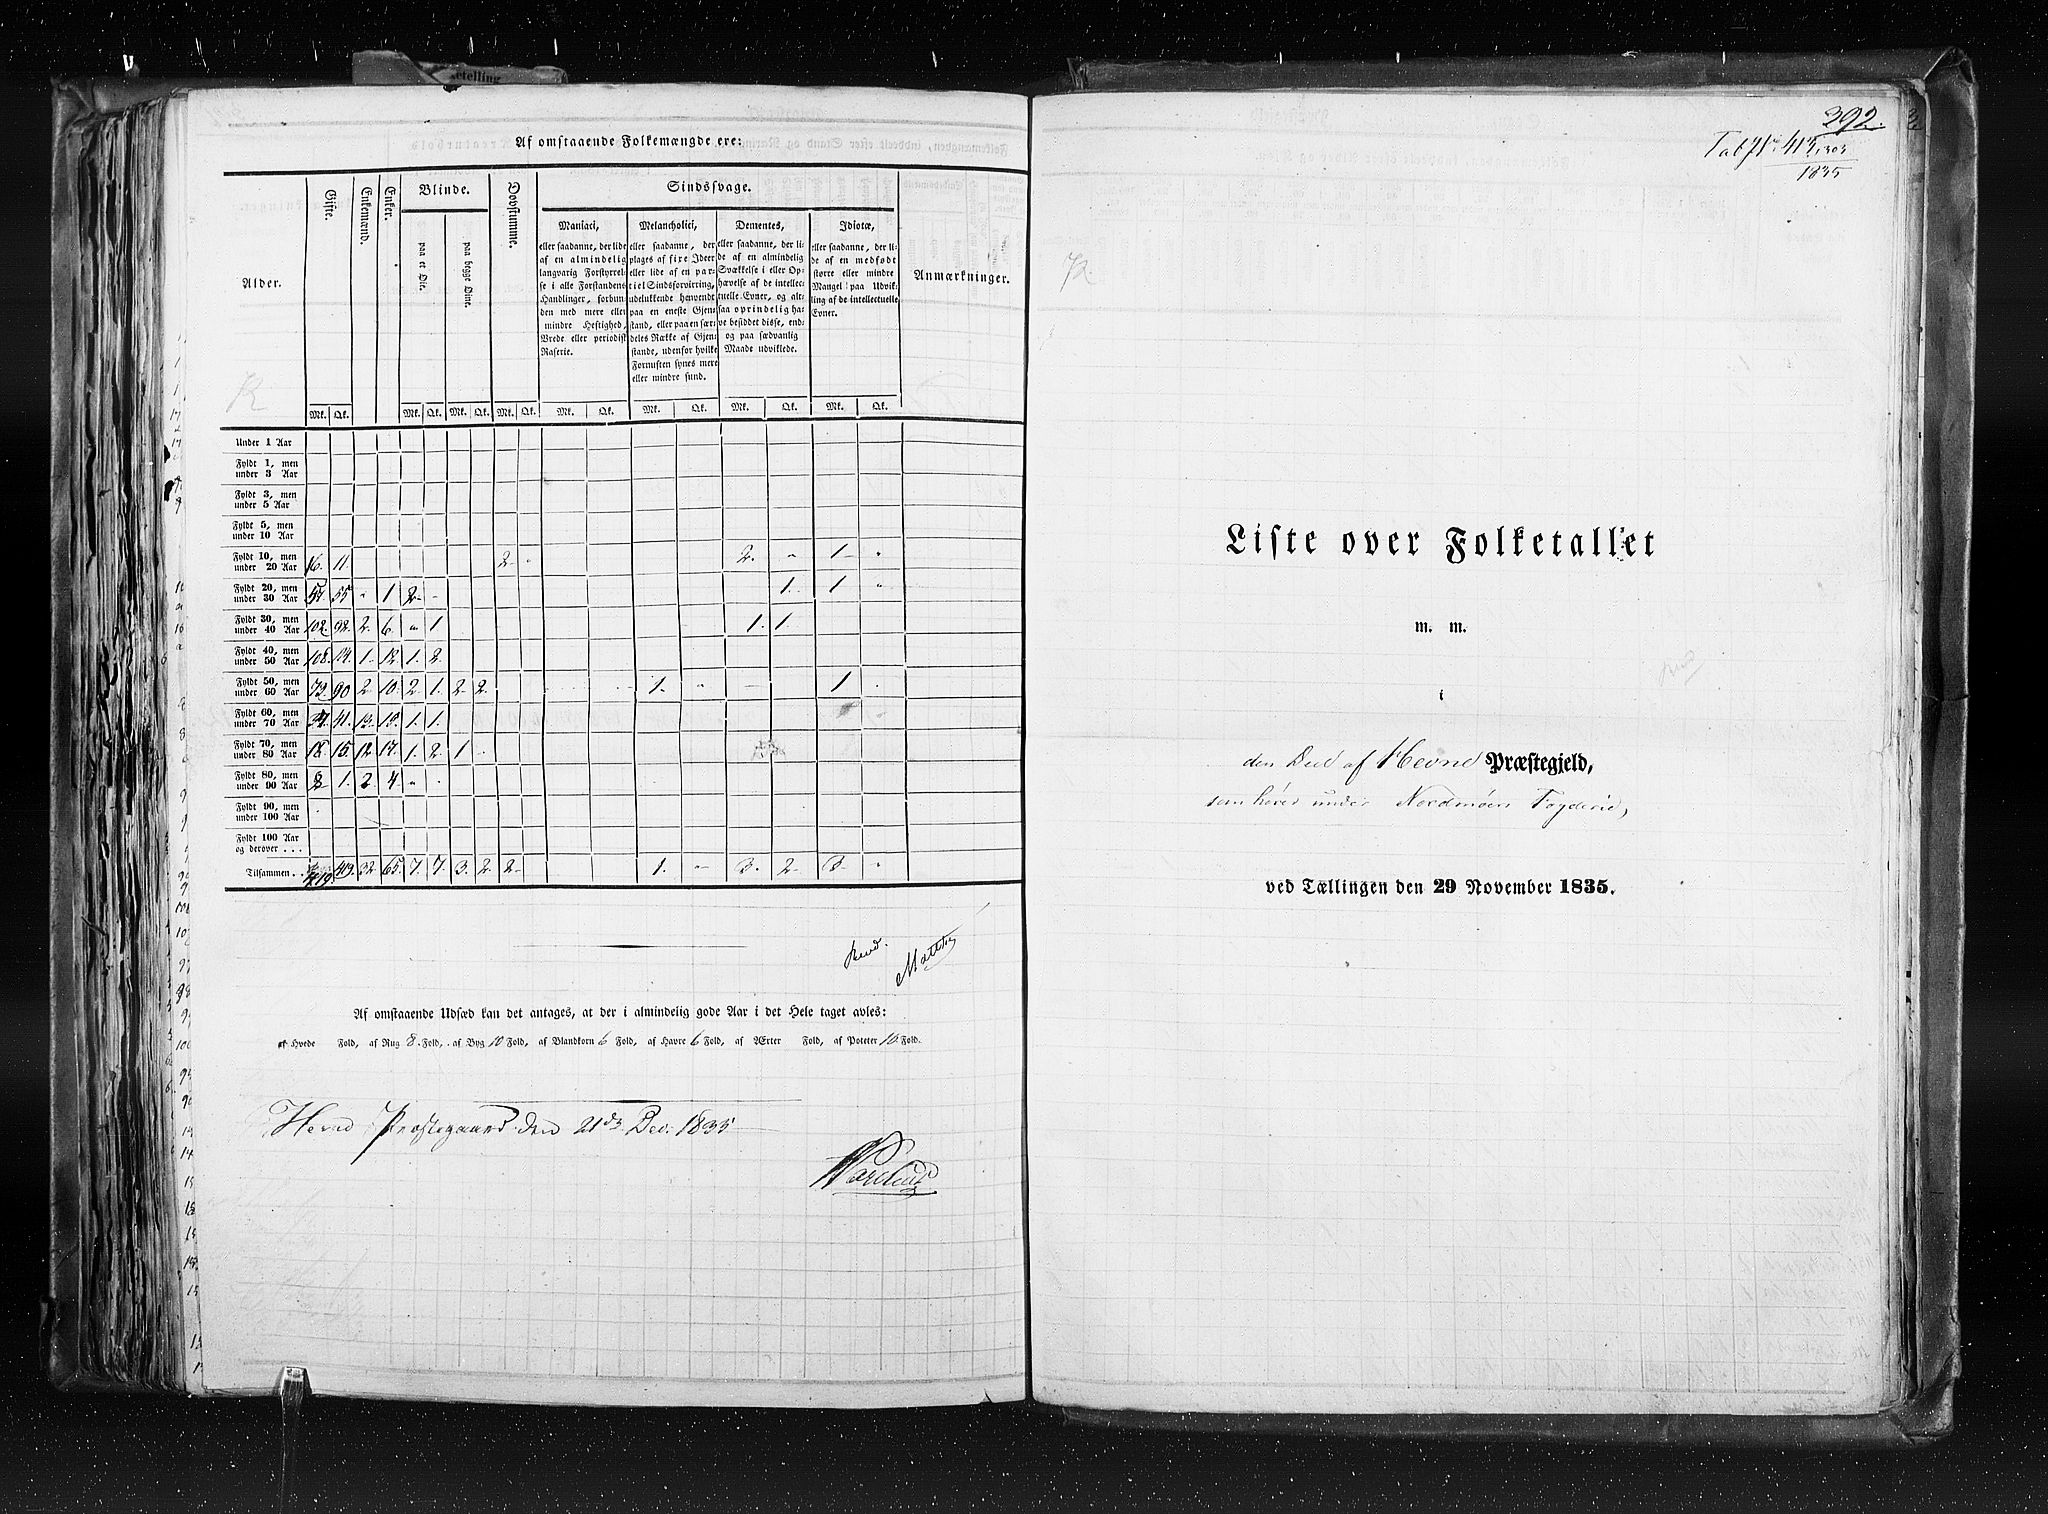 etelling
Af omstaaende Folkemængde ere:
Alder.
Gifte.
Enkemænd.
Enker.
Blinde.
paa et Øie.
paa begge Øine.
Døvstumme.
Sindssvage.
Maniaci,
eller saadanne, der lide
af en almindelig
langvarig Forstyrrel-
se i alle Forstandens
Handlinger, forbun-
den med mere eller
mindre Heftighed,
Vrede eller periodisk
Raserie.
Melancholici,
eller saadanne, der
plages af fixe Ideer
eller lide af en par-
tiel Sindsforvirring,
udelukkende henvendt
paa en eneste Gjen-
stand, eller paa en sær-
deles Række af Gjen-
stande, udenfor hvilke
Fornuften synes mere
eller mindre sund.
Dementes,
eller saadanne, der li-
de af en almindelig
Svækkelse i eller Op-
hævelse af de intellec-
tuelle Evner, og alt-
saa oprindelig ha-
ve besiddet disse, end-
og paa sædvanlig
Maade udviklede.
Idiotæ,
eller saadanne, der li-
de af en medfødt
større eller mindre
Mangel paa Udvik-
ling af de intellectuelle
Evner.
Anmærkninger.
Mk. Qk. Mk. Qk. Mk. Qk. Mk. Qk. Mk. Qk. Mk. Qk. Mk. Qk. Mk. Qk.
Under 1 Aar
Fyldt 1, men
under 3 Aar
Fyldt 3, men
under 5 Aar
Fyldt 5, men
under 10 Aar
Fyldt 10, men
under 20 Aar 16. 11. 2 " 2. " 1 "
Fyldt 20, men
under 30 Aar 57. 55 " 1 2 - 1. 1 "
Fyldt 30, men
under 40 Aar 102. 92. 2. 6. " 1 1. 1.
Fyldt 40, men
under 50 Aar 108. 114. 1. 12. 1. 2.
Fyldt 50, men
under 60 Aar 73. 90 2 10. 2. 1. 2 2. 1. " 1
Fyldt 60, men
under 70 Aar 41. 13. 15. 1. 1.
Fyldt 70, men
under 80 Aar 18. 15. 12 17. 1. 2. 1
Fyldt 80, men
under 90 Aar 8 1. 2 4. "
Fyldt 90, men
under 100 Aar
Fyldt 100 Aar
og derover . . .
Tilsammen . . 419. 419. 32. 65. 7. 7. 3. 2. 2 1. " 3. 2. 3 "
Revd.
Af omstaaende Udsæd kan det antages, at der i almindelig gode Aar i det Hele taget avles:
af Hvede Fold, af Rug 8 Fold, af Byg 10 Fold, af Blandkorn 6 Fold, af Havre 6 Fold, af Ærter Fold, af Poteter 10 Fold.
Hevne Præstegaard den 21de Dec. 1835
392.
1835
Liste over Folketallet
m. m.
i
den Deel af Hevne Præstegjeld,
som hører under Nordmørs Fogderie,
ved Tællingen den 29 November 1835.